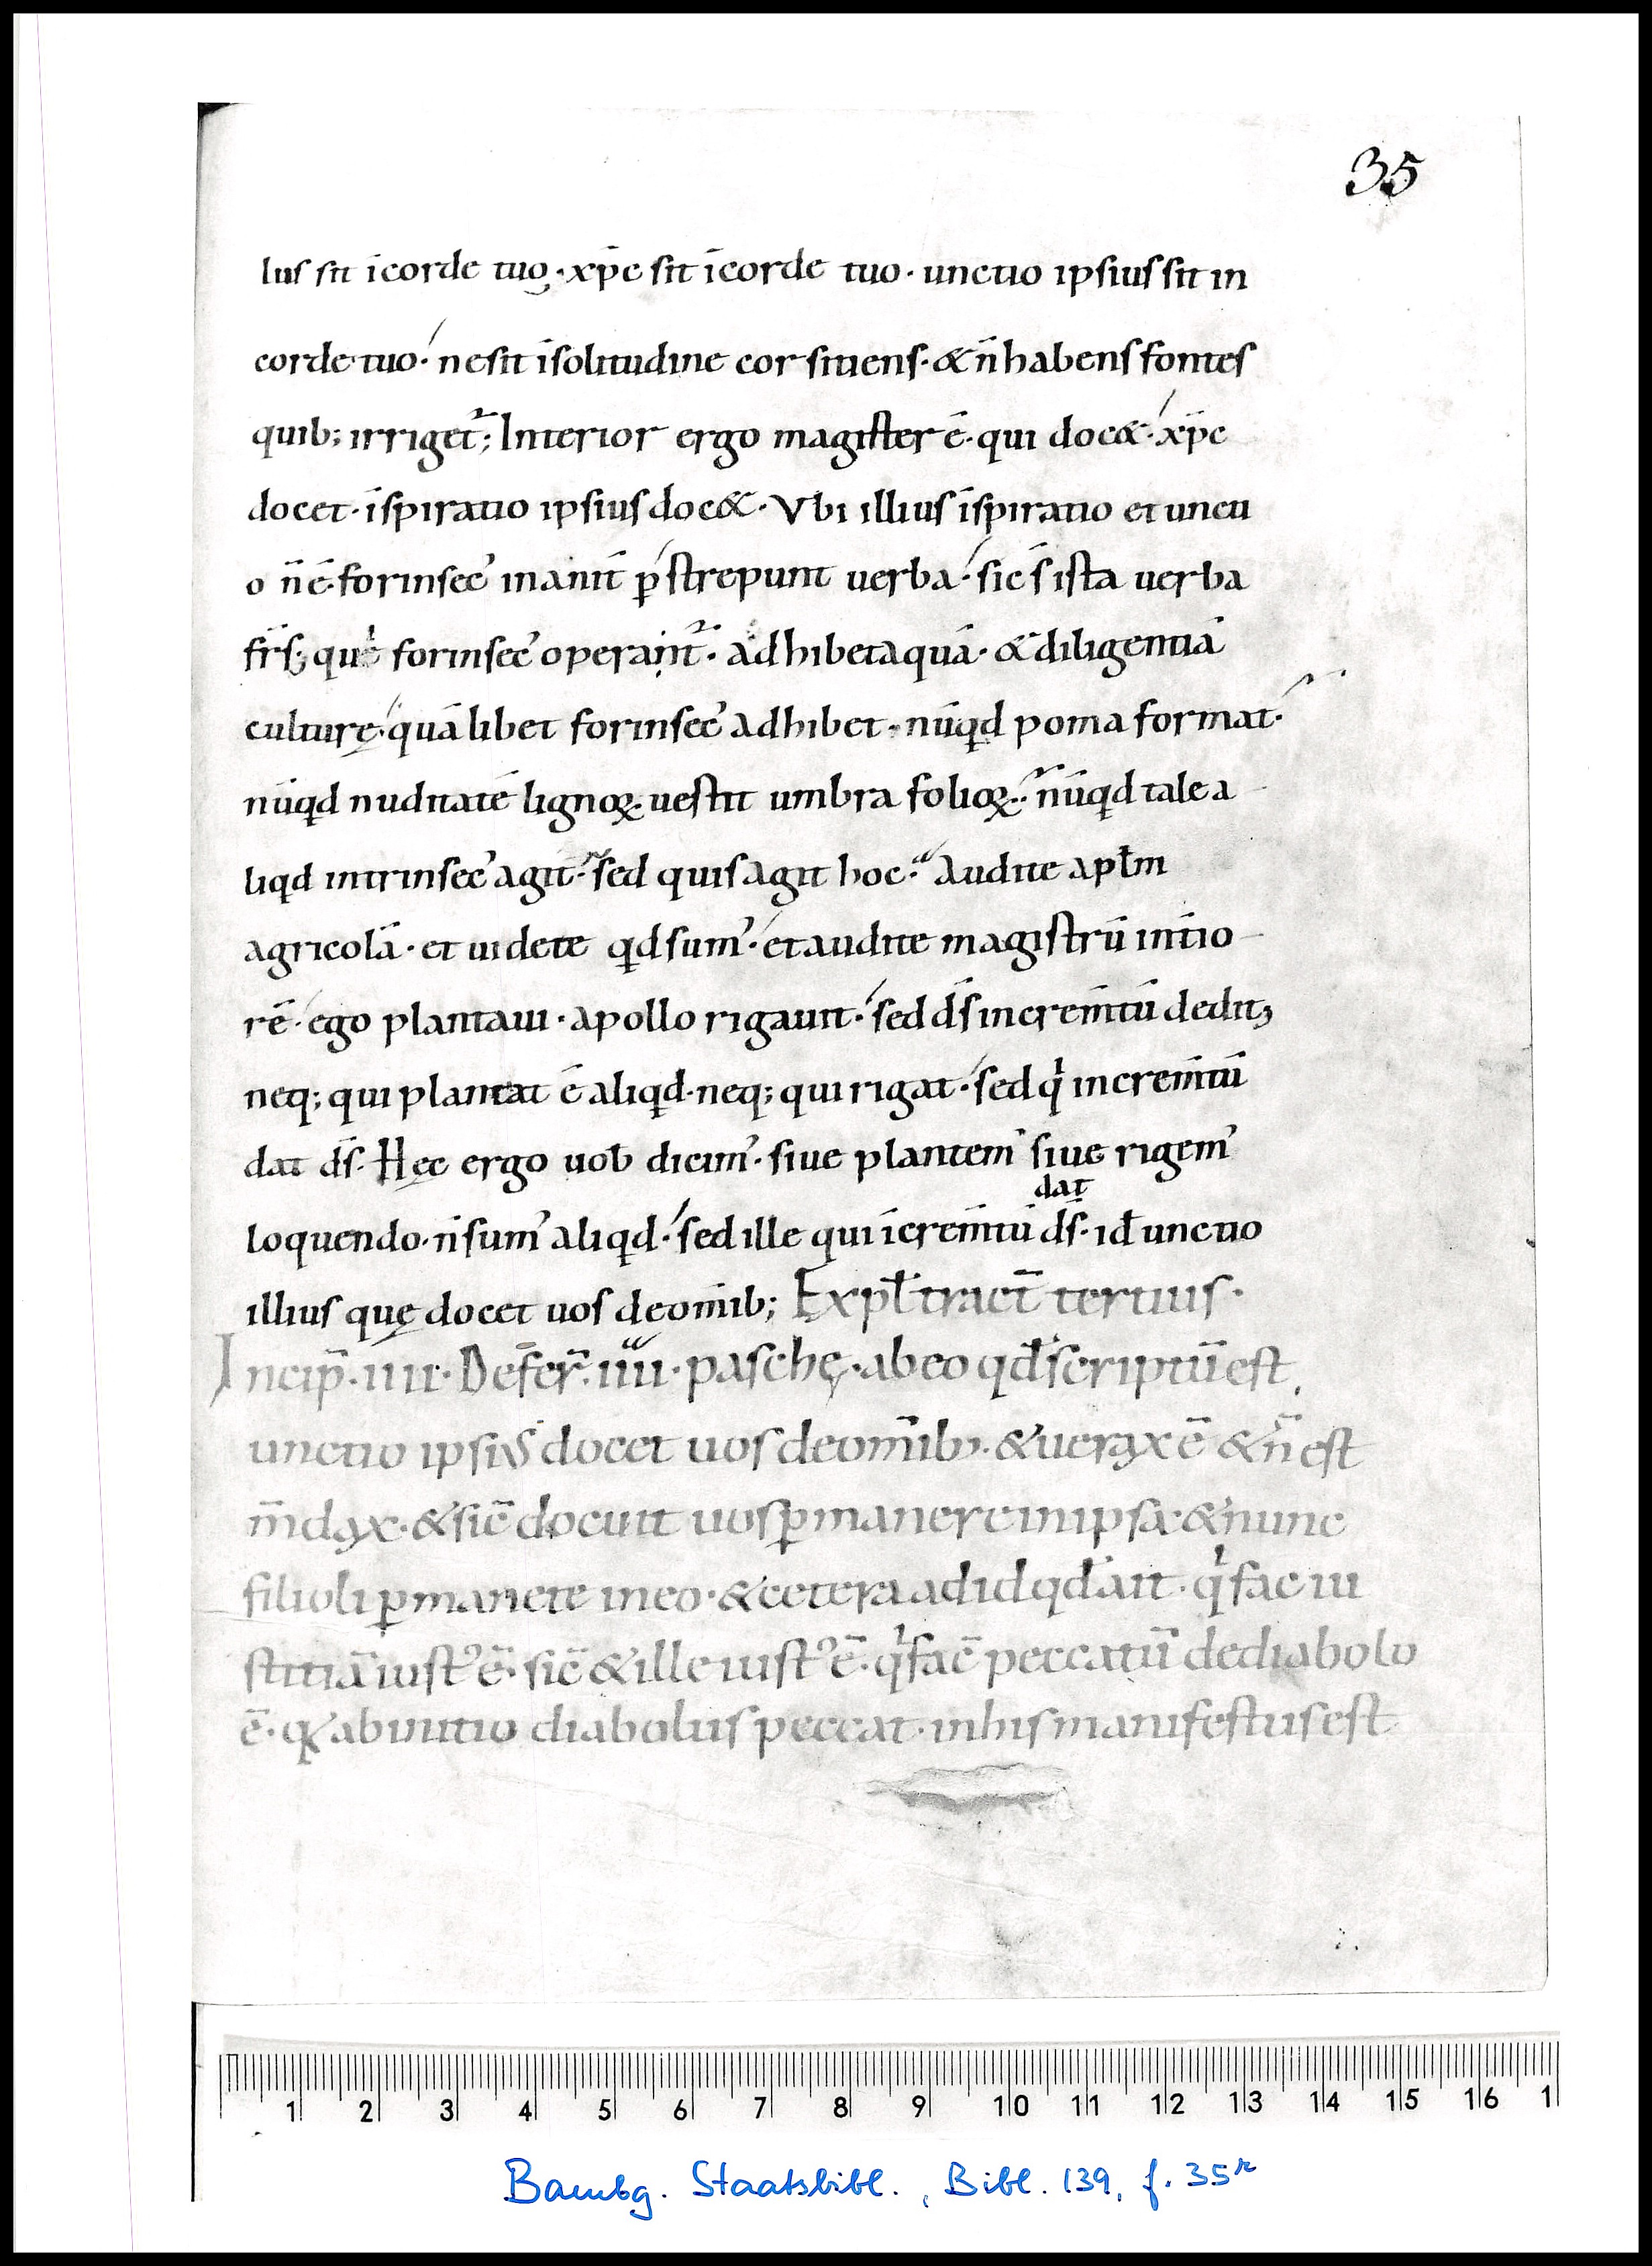 35
lus sit īcorde tuo · xp̄c sit īcorde tuo · unctio ipsius sit in
corde tuo · ne sit īsolitudine cor sitiens · & n̄ habens fontes
quib; irriget᷑; Interior ergo magister ē · qui doc& · xp̄c
docet · īspiratio ipsius doc& · Vbi illius īspiratio et uncti
o n̄ ē · forinsec᾽ inanit̄ ꝑstrepunt uerba · sic s̄ ista uerba
fr̄s; quę forinsec᾽ operant᷑ · adhibet aquā · & diligentiā
culturę · quālibet forinsec᾽ adhibet · nūqd poma format ·
nūqd nuditatē lignoꝝ uestit umbra folioꝝ · nūqd tale a
liqd intrinsec᾽ agit · sed quis agit hoc · Audite apl̄m
agricolā · et uidete qd sum᾽ · et audite magistrū int̄io
rē · ego plantaui · apollo rigauit · sed d̄s increm̄tū dedit;
neq; qui plantat ē aliqd · neq; qui rigat · sed q̇ increm̄tū
dat d̄s · Hęc ergo uob̄ dicim᾽ · siue plantem᾽ siue rigem᾽
dat
loquendo · n̄ sum᾽ aliqd · sed ille qui īcrem̄tū d̄s · id̄ unctio
illius quę docet uos deom̄ib; Expl̄ tract̄ tertius ·
Incip̄ · iiii · De fer̄ · iiii · paschę · ab eo qd̄ scriptū est
unctio ipsius docet uos deom̄ib; · & uerax ē & n̄ est
m̄dax · & sic̄ docuit uos ꝑmanere in ipsa · & nunc
filioli ꝑmanete in eo · & cetera ad id qd̄ ait · q̇ fac iu
stitiā iust᾽ ē · sic̄ & ille iust᾽ ē · q̇ fac̄ peccatū de diabolo
ē · qa ab initio diabolus peccat · in his manifestus est
1 2 3 4 5 6 7 8 9 10 11 12 13 14 15 16 1
Bambg. Staatsbibl., Bibl. 139, f. 35r